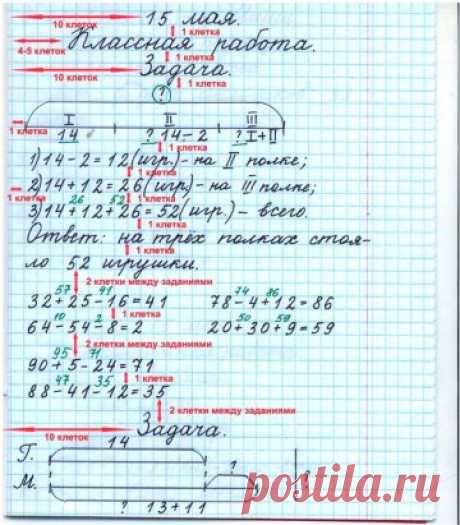 15 мая.
10 клеток
1 клетка
Классная работа.
4-5 клеток
1 клетка
Задача.
10 клеток
1 клетка
?
I II III
1 клетка
14 ? 14-2 ? I+II
1 клетка
1) 14-2=12 (игр.)- на II полке;
1 клетка
2) 14+12=26 (игр.)- на III полке;
1 клетка 1 клетка
26 52
3) 14+12+26=52 (игр.)- всего.
1 клетка
Ответ: на трёх полках стоя-
1 клетка
ло 52 игрушки.
2 клетки между заданиями
57 41 74 86
32+25-16=41 78-4+12=86
1 клетка
10 2 50 59
64-54-8=2 20+30+9=59
2 клетки между заданиями
95 71
90+5-24=71
1 клетка
47 35
88-41-12=35
2 клетки между заданиями
Задача.
10 клеток
14
Г.
1
М.
?
? 13+11
postila.ru